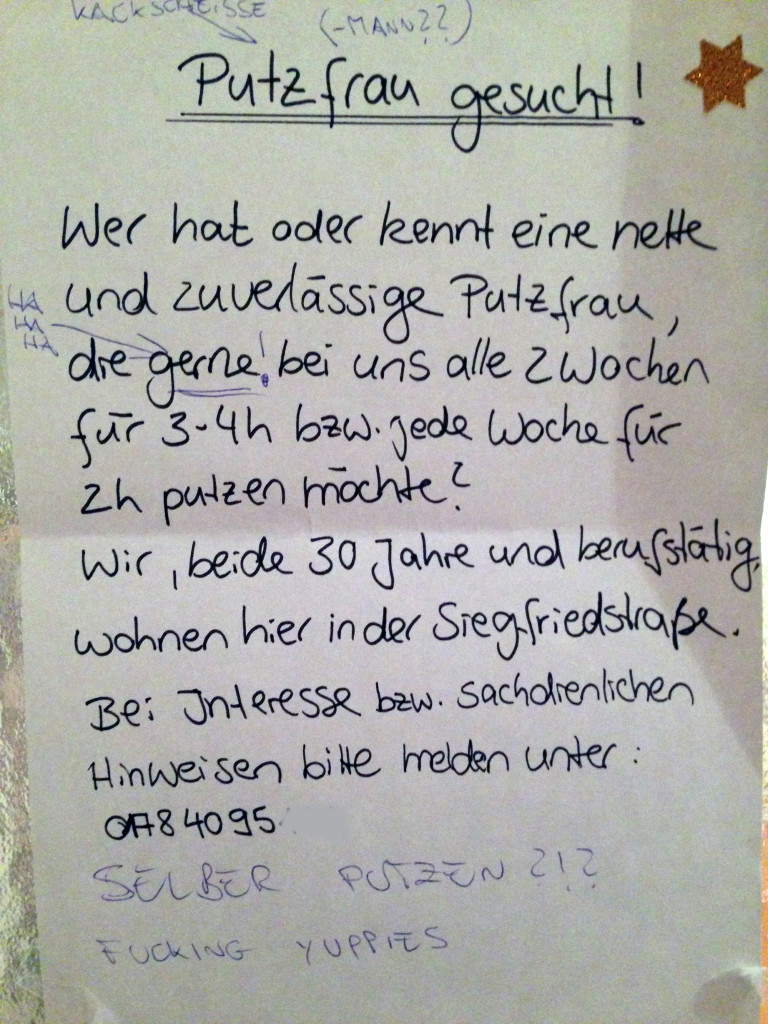 KACKSCHEISSE
(-MANN??)
Putzfrau gesucht!
Wer hat oder kennt eine nette
HA
HA
HA
und zuverlässige Putzfrau,
die gerne! bei uns alle 2 Wochen
für 3-4h bzw. jede Woche für
2h putzen möchte?
Wir, beide 30 Jahre und berufstätig,
wohnen hier in der Siegfriedstraße.
Bei Interesse bzw. sachdienlichen
Hinweisen bitte melden unter:
0784095
SELBER PUTZEN?!?
FUCKING YUPPIES